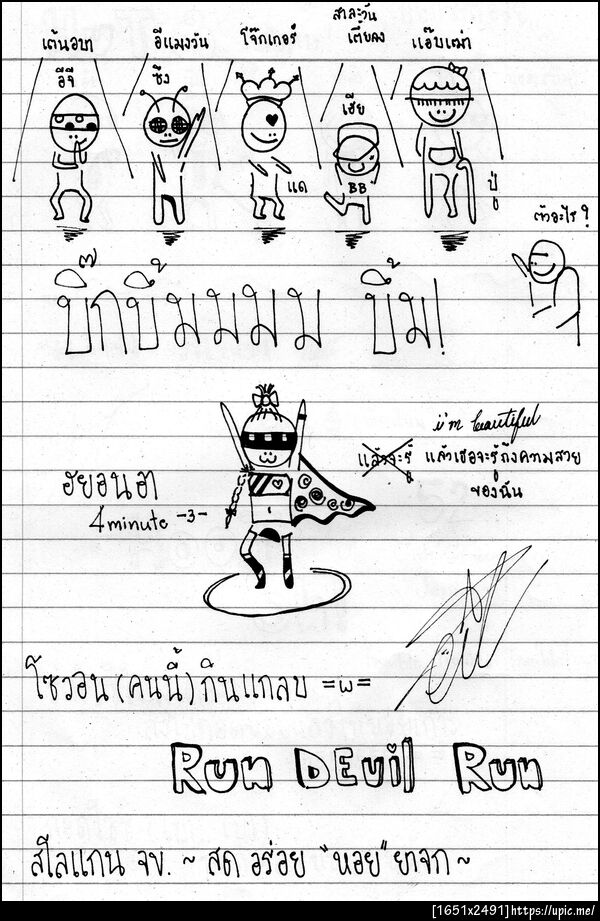 เต้นอบา อีแมงวัน โจ๊กเกอร์ สาละวันเตี้ยลง แอ๊บเฒ่า
อีจี ซึง แด เฮีย ปู่
BB
ตัวอะไร?
บิ๊กบึ้มมมม บึ้ม!
i'm beautiful
แล้วจะรู้ แล้วเธอจะรู้ถึงความสวย
ของฉัน
ฮยอนอา
4minute -3-
โซวอน (คนนี้) กินแกลบ =w=
Run DEvil Run
สโลแกน จข. ~ สด อร่อย "หอย" ยาจก ~
[1651x2491]https://upic.me/